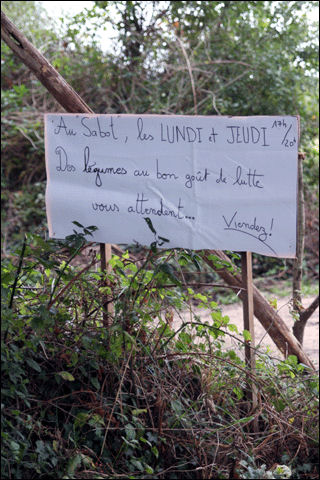 Au "Sabot", les LUNDI et JEUDI 17h/20h
Des légumes au bon goût de lutte
vous attendent...
Viendez!